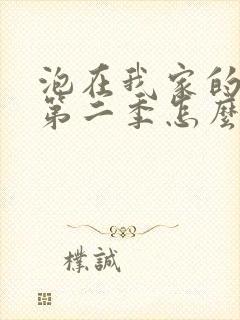 泡在我家的
第二季怎麼
樸誠